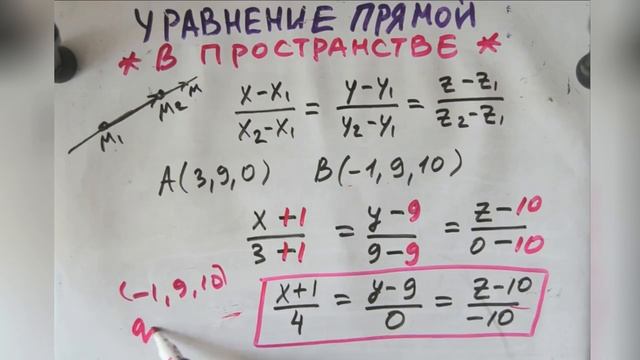 УРАВНЕНИЕ ПРЯМОЙ
* В ПРОСТРАНСТВЕ *
M₁ M₂ M
(x-x₁)/(x₂-x₁) = (y-y₁)/(y₂-y₁) = (z-z₁)/(z₂-z₁)
A(3,9,0) B(-1,9,10)
(x+1)/(3+1) = (y-9)/(9-9) = (z-10)/(0-10)
(-1,9,10)
(x+1)/4 = (y-9)/0 = (z-10)/-10